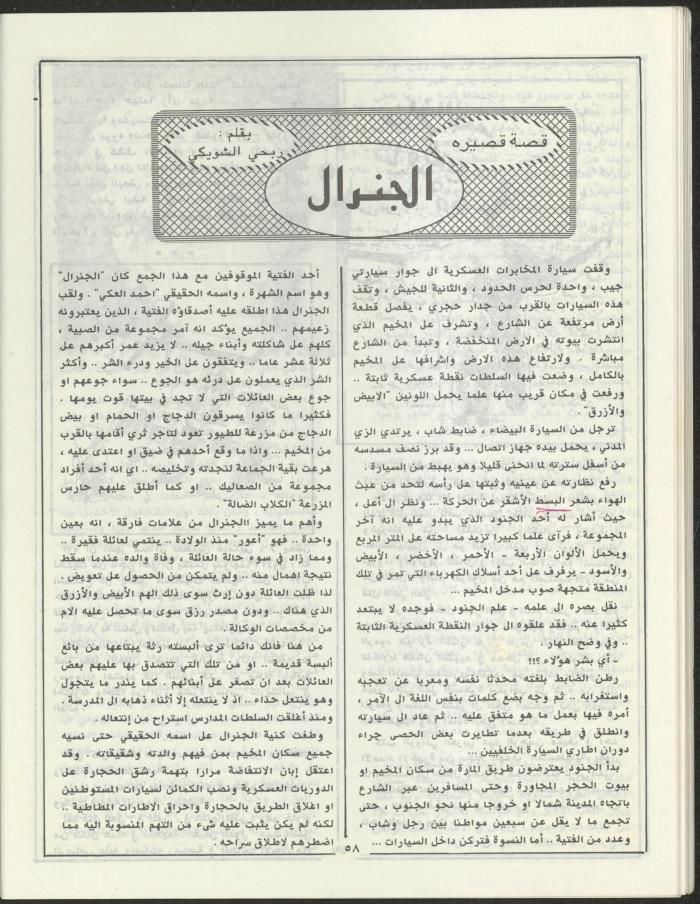 قصة قصيره
بقلم :
ربحي الشويكي
الجنرال
وقفت سيارة المخابرات العسكرية الى جوار سيارتي
جيب ، واحدة لحرس الحدود ، والثانية للجيش ، وتقف
هذه السيارات بالقرب من جدار حجري ، يفصل قطعة
أرض مرتفعة عن الشارع ، وتشرف على المخيم الذي
انتشرت بيوته في الارض المنخفضة ، وتبدأ من الشارع
مباشرة . ولارتفاع هذه الارض واشرافها على المخيم
بالكامل ، وضعت فيها السلطات نقطة عسكرية ثابتة ..
ورفعت في مكان قريب منها علما يحمل اللونين "الابيض
والأزرق" .
ترجل من السيارة البيضاء ، ضابط شاب ، يرتدي الزي
المدني ، يحمل بيده جهاز اتصال ... وقد برز نصف مسدسه
من أسفل سترته لما انحنى قليلا وهو يهبط من السيارة .
رفع نظارته عن عينيه وثبتها على رأسه لتحد من عبث
الهواء بشعر البسط الأشقر عن الحركة ... ونظر الى أعلى ،
حيث أشار له أحد الجنود الذي يبدو عليه انه آخر
المجموعة ، فرآى علما كبيرا تزيد مساحته على المتر المربع
ويحمل الألوان الأربعة - الأحمر ، الأخضر ، الأبيض
والأسود - يرفرف على أحد أسلاك الكهرباء التي تمر في تلك
المنطقة متجهة صوب مدخل المخيم ...
نقل بصره الى علمه - علم الجنود - فوجده لا يبتعد
كثيرا عنه .. فقد علقوه الى جوار النقطة العسكرية الثابتة
.. وفي وضح النهار .
- أي بشر هؤلاء ؟!!
رطن الضابط بلغته محدثا نفسه ومعربا عن تعجبه
واستغرابه .. ثم وجه بضع كلمات بنفس اللغة الى الآمر ،
أمره فيها بعمل ما هو متفق عليه .. ثم عاد الى سيارته
وانطلق في طريقه بعدما تطايرت بعض الحصى جراء
دوران اطاري السيارة الخلفيين ...
بدأ الجنود يعترضون طريق المارة من سكان المخيم او
بيوت الحجر المجاورة وحتى المسافرين عبر الشارع
باتجاه المدينة شمالا او خروجا منها نحو الجنوب ، حتى
تجمع ما لا يقل عن سبعين مواطنا بين رجل وشاب ،
وعدد من الفتية .. أما النسوة فتركن داخل السيارات ...
أحد الفتية الموقوفين مع هذا الجمع كان "الجنرال"
وهو اسم الشهرة ، واسمه الحقيقي "احمد العكي" . ولقب
الجنرال هذا اطلقه عليه أصدقاؤه الفتية ، الذين يعتبرونه
زعيمهم .. الجميع يؤكد انه آمر مجموعة من الصبية ،
كلهم على شاكلته وأبناء جيله .. لا يزيد عمر أكبرهم على
ثلاثة عشر عاما .. ويتفقون على الخير ودرء الشر .. وأكثر
الشر الذي يعملون على درئه هو الجوع .. سواء جوعهم او
جوع بعض العائلات التي لا تجد في بيتها قوت يومها .
فكثيرا ما كانوا يسرقون الدجاج او الحمام او بيض
الدجاج من مزرعة للطيور تعود لتاجر ثري أقامها بالقرب
من المخيم ... واذا ما وقع أحدهم في ضيق او اعتدى عليه ،
هرعت بقية الجماعة لنجدته وتخليصه .. اي انه أحد أفراد
مجموعة من الصعاليك .. او كما أطلق عليهم حارس
المزرعة "الكلاب الضالة" .
وأهم ما يميز االجنرال من علامات فارقة ، انه بعين
واحدة .. فهو "أعور" منذ الولادة .. ينتمي لعائلة فقيرة ..
ومما زاد في سوء حالة العائلة ، وفاة والده عندما سقط
نتيجة اهمال منه .. ولم يتمكن من الحصول على تعويض .
لذا ظلت العائلة دون إرث سوى ذلك الهم الأبيض والأزرق
الذي هناك .. ودون مصدر رزق سوى ما تحصل عليه الام
من مخصصات الوكالة .
من هنا فانك دائما ترى ألبسته رثة يبتاعها من بائع
ألبسة قديمة .. او من تلك التي تتصدق بها عليهم بعض
العائلات بعد ان تصغر على أبنائهم . كما يندر ما يتجول
وهو ينتعل حذاء .. اذ لا ينتعله إلا أثناء ذهابه الى المدرسة .
ومنذ أغلقت السلطات المدارس استراح من إنتعاله .
وطغت كنية الجنرال على اسمه الحقيقي حتى نسيه
جميع سكان المخيم بمن فيهم والدته وشقيقاته . وقد
اعتقل إبان الانتفاضة مرارا بتهمة رشق الحجارة على
الدوريات العسكرية ونصب الكمائن لسيارات المستوطنين
او اغلاق الطريق بالحجارة واحراق الاطارات المطاطية ..
لكنه لم يكن يثبت عليه شىء من التهم المنسوبة اليه مما
اضطرهم لاطلاق سراحه .
٥٨